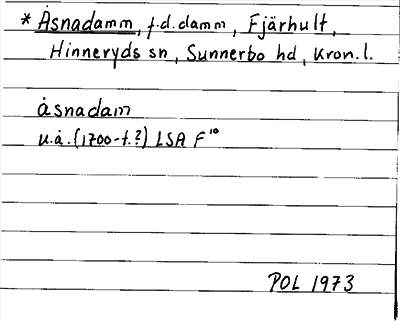 * Åsnadamm, f.d. damm, Fjärhult,
Hinneryds sn, Sunnerbo hd, Kron. l.
åsnadam
u.å. (1700-t.?) LSA F¹⁰
POL 1973